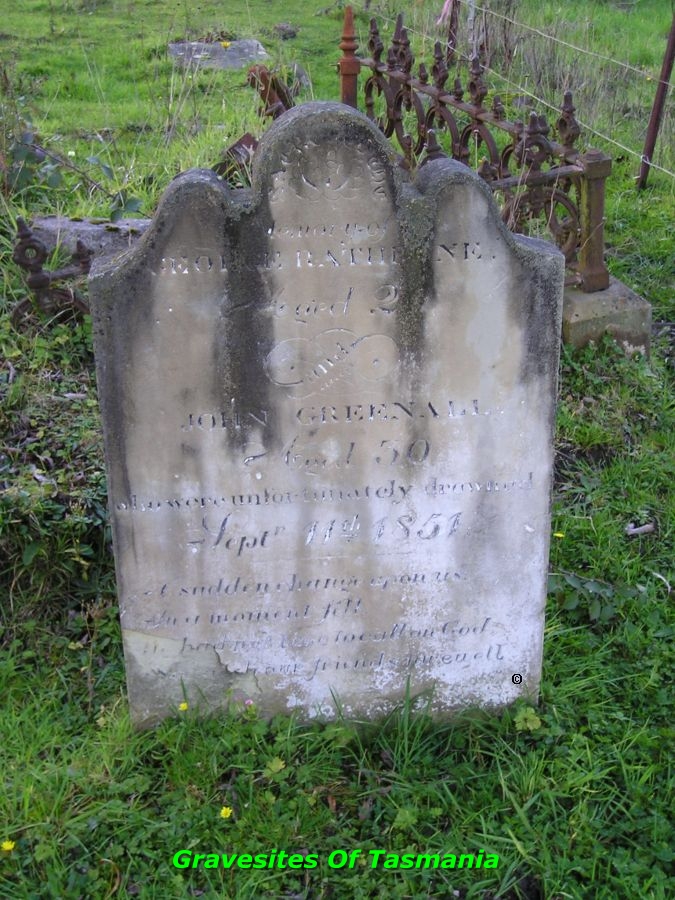 memory of
GEORGE RATHBONE
Aged 2
and
JOHN GREENALL
Aged 30
who were unfortunately drowned
Septr 11th 1851
A sudden change upon us
In a moment fell
had not time to call on God
our friends farewell
©
Gravesites Of Tasmania